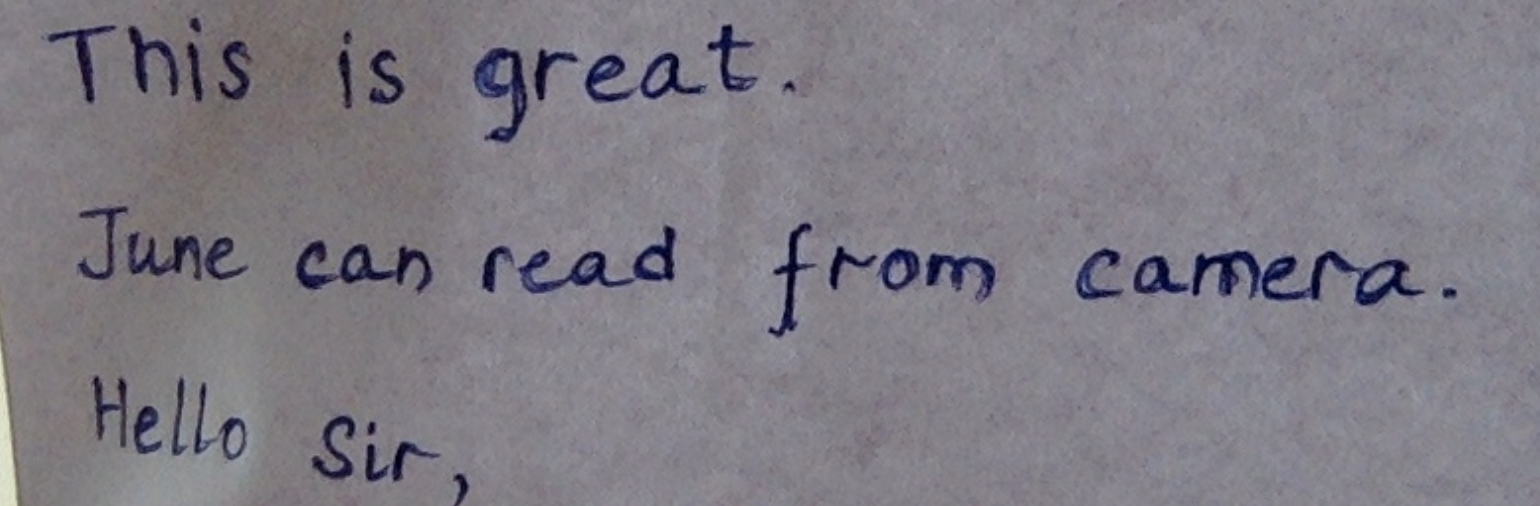 This is great.
June can read from camera.
Hello Sir,